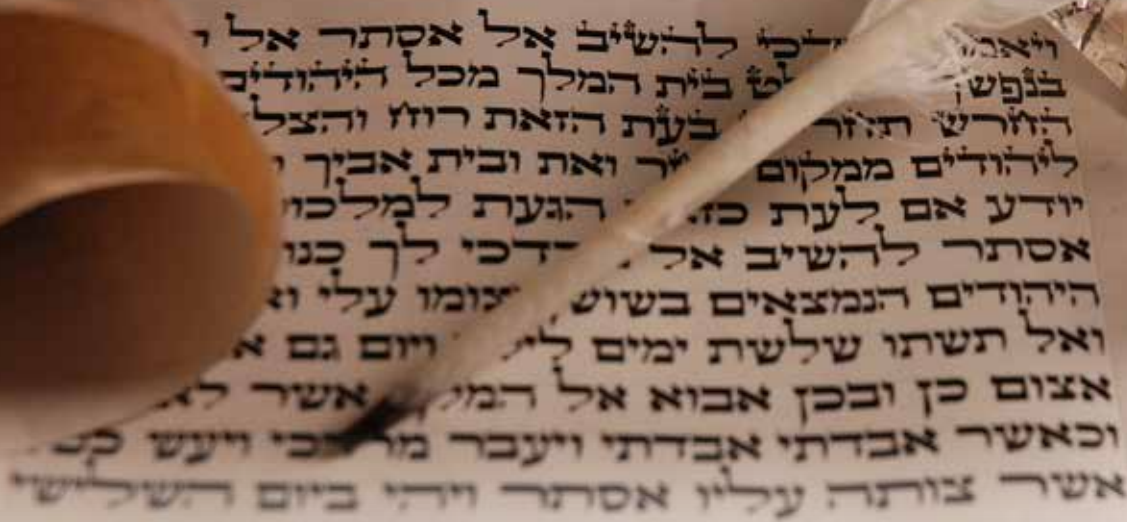 להשיב אל אסתר אל
בית המלך מכל היהודים
החרש בעת הזאת רוח
ליהודים ממקום ואת ובית אביך
יודע אם לעת הגעת
אסתר להשיב אל לך
היהודים הנמצאים עלי
ואל תשתו שלשת ימים ויום גם
אצום כן ובכן אבוא אל המלך אשר
וכאשר אבדתי אבדתי ויעבר מרדכי ויעש
אשר צותה עליו אסתר ויהי ביום השלישי